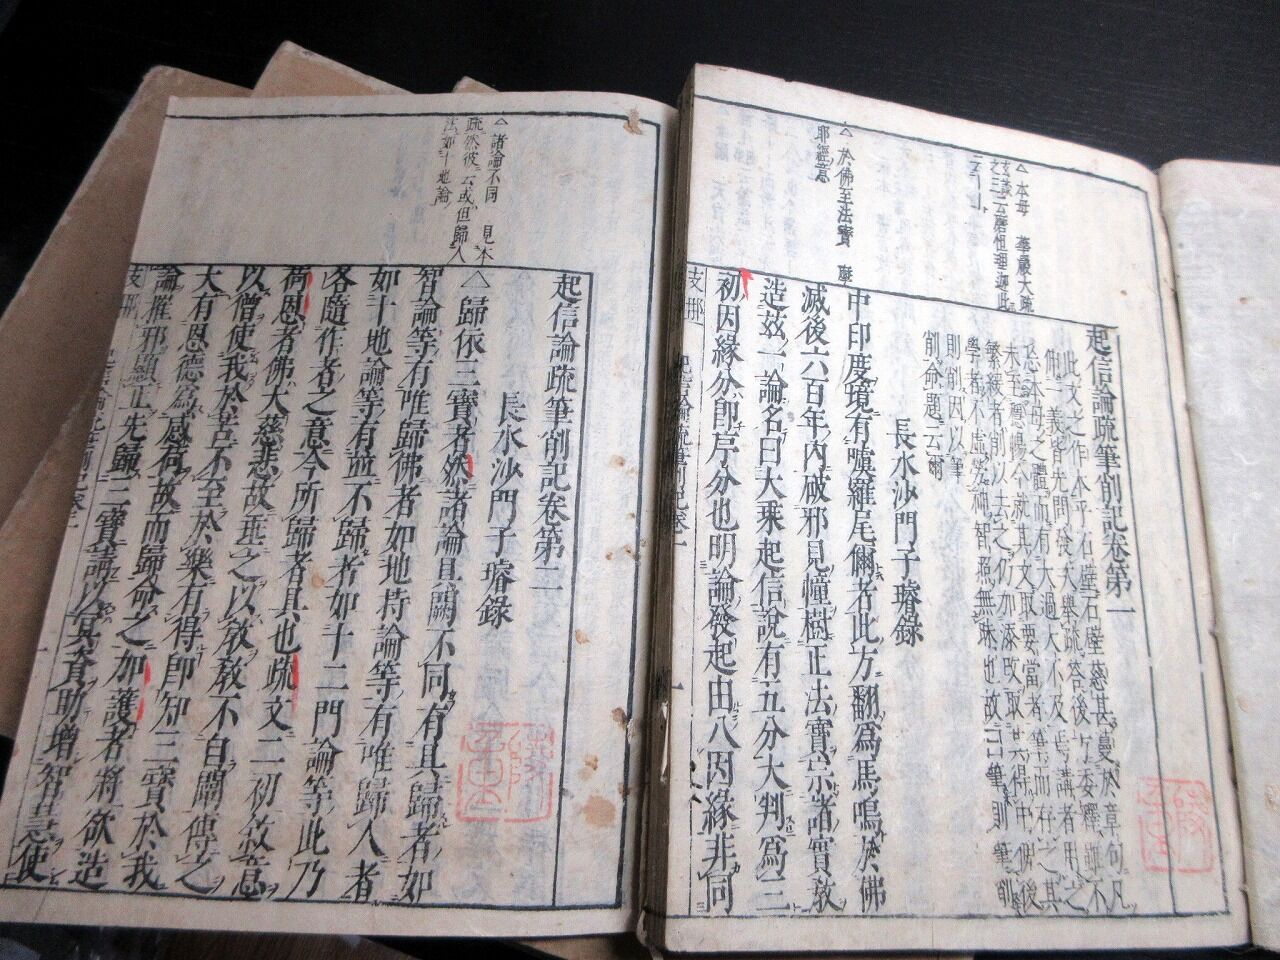 △本母 華嚴大疏
△於佛至法寶
耶經意
起信論疏筆削記卷第一
此文之作本乎石壁石壁慈甚蔓於章句凡
伸一義皆先問發大擧疏答後方委釋雖不
忘本母之體而有太過大不及焉講者用之
未至稳暢今就其文取要當者筆而存之其
繁緩者削以去之仍加添改取其得中俾後
學者不虛勞神智照無昧也故曰筆則筆削
則削因以筆
削命題云爾
長水沙門子璿錄
中印度境有嚧羅尾儞者此方翻為馬鳴於佛
滅後六百年內破邪見幢樹正法寶宗諸實教
造茲一論名曰大乘起信說有五分大判為三
初因緣分即序分也明論發起由八因緣非同
支那 起信論疏筆削記卷一
△諸論不同 見本
疏然彼云或但歸人
法如十地論
起信論疏筆削記卷第二
長水沙門子璿錄
△歸依三寶者然諸論具闕不同有具歸者如
智論等有唯歸佛者如地持論等有唯歸人者
如十地論等有並不歸者如十二門論等此乃
各隨作者之意今所歸者具也疏文二初敘意
荷恩者佛大慈悲故垂之以教教不自闡傳之
以僧使我於苦不至於樂有得即知三寶於我
大有恩德為感荷故而歸命之加護者將欲造
論摧邪顯正先歸三寶請以冥資助增智慧使
支那